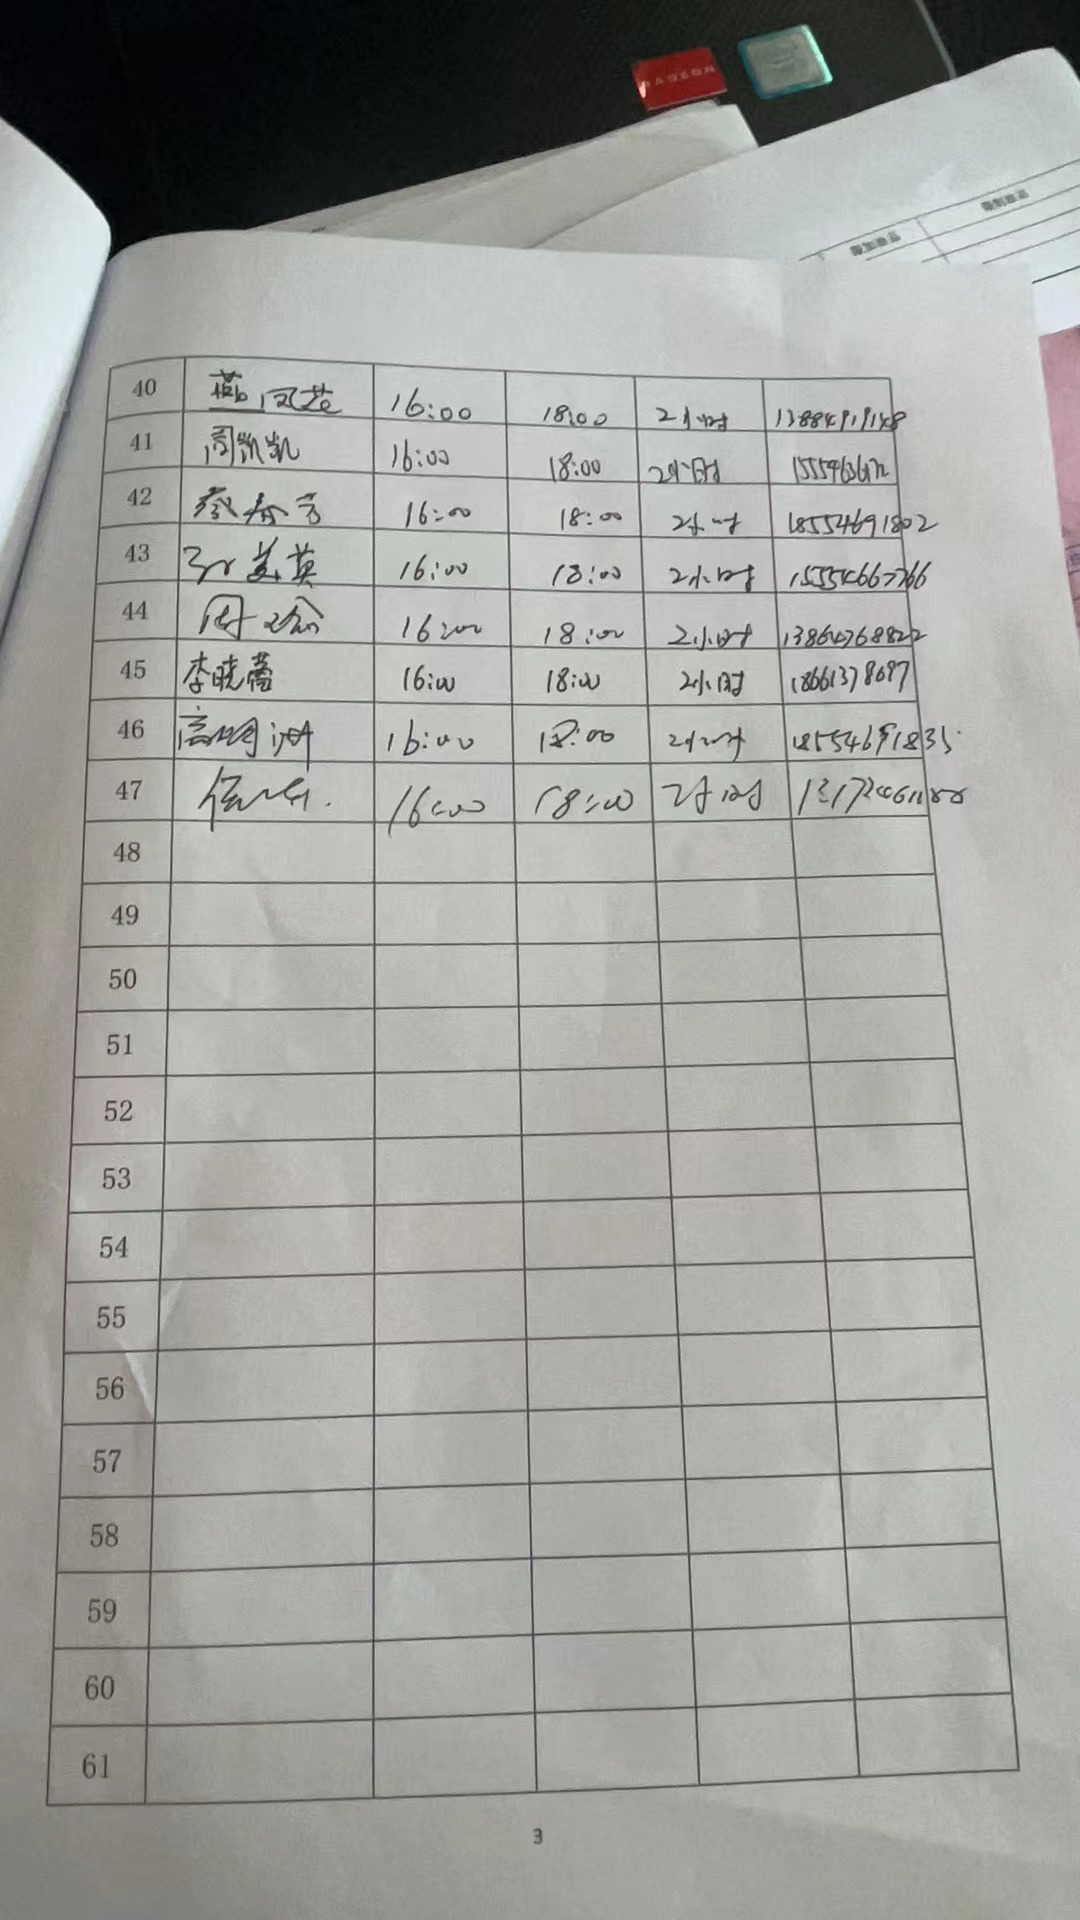 RADEON
40 燕凤芝 16:00 18:00 2小时 13884919148
41 周凯凯 16:00 18:00 2小时
42 蔡春芳 16:00 18:00 2小时 18554691802
43 美英 16:00 18:00 2小时 15554667766
44 周 16:00 18:00 2小时 13864768822
45 李晓蕾 16:00 18:00 2小时 18661378697
46 高 16:00 18:00 2小时 18554691835
47 16:00 18:00 2小时
48
49
50
51
52
53
54
55
56
57
58
59
60
61
3